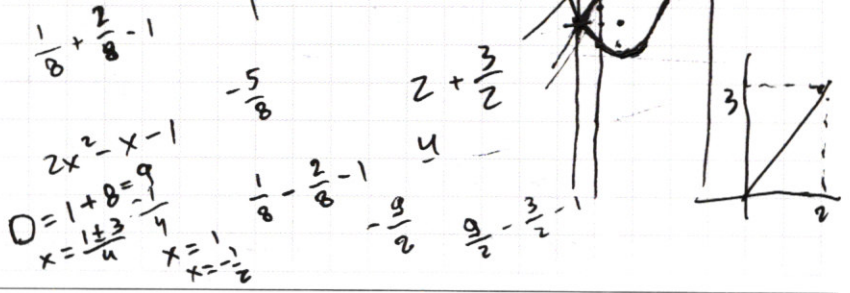 1/8 + 2/8 - 1
-5/8
2 + 3/2
4
3
2
2x² - x - 1
D = 1 + 8 = 9
x = (1 ± 3)/4
x = 1
x = -1/2
1/8 - 2/8 - 1
-9/2
9/2 - 3/2 - 1